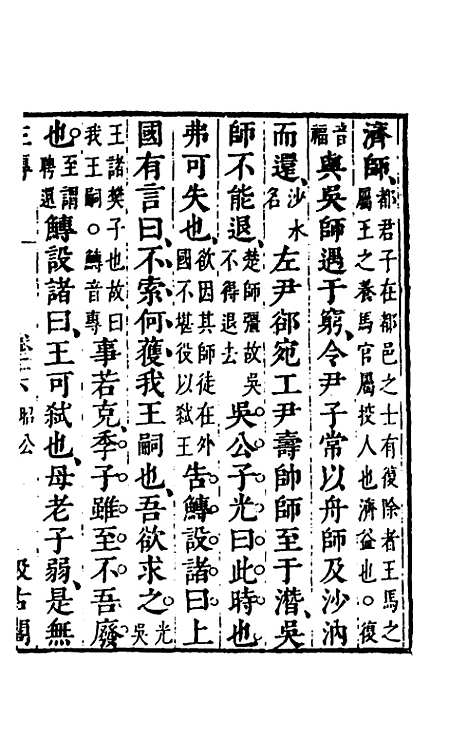 濟師、都君子在都邑之士有復除者王馬之屬王之養馬官屬挍人也濟益也○復
音福與吳師遇于窮、令尹子常以舟師及沙汭
而還、沙水名左尹郤宛工尹壽帥師至于潛、吳
師不能退、楚師彊故吳不得退去吳公子光曰此時也
弗可失也、欲因其師徒在外國不堪役以弑王告鱄設諸曰上
國有言曰、不索何獲我王嗣也、吾欲求之光吳
王諸樊子也故曰我王嗣○鱄音專事若克、季子雖至不吾廢
也、至謂聘還鱄設諸曰、王可弑也、母老子弱、是無
昭公